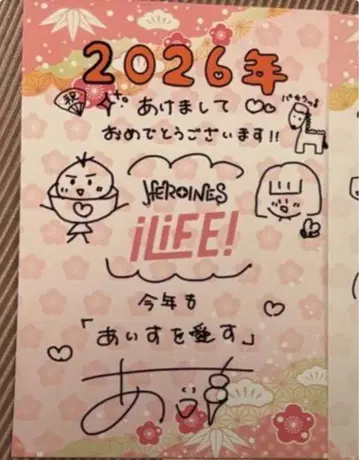 2026年
祝
あけまして
おめでとうございます!!
HEROINES
iLiFE!
今年も
「あいすを愛す」